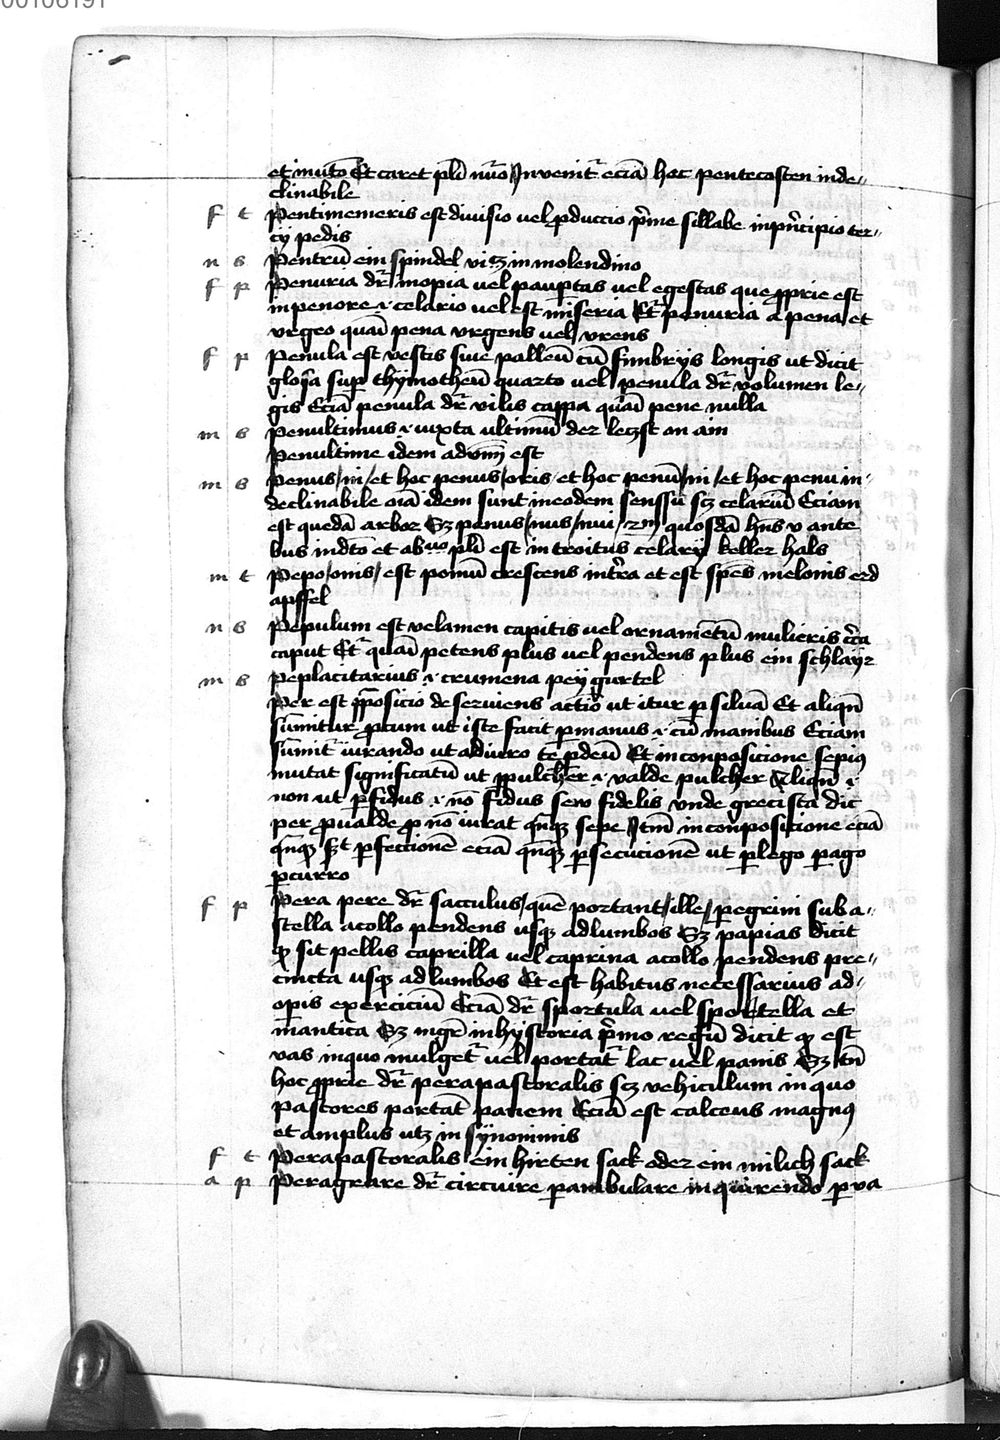 00106191
et invito᷑ Et caret pl̄i nūo Invenit᷑ eciā hoc pentecosten inde-
clinabile
f t Pentimemeris est divisio vel ꝓduccio p̄me sillabe in pn̄cipio ter-
cij pedis
n s Pentrū ein spindel viꝫ in molendino
f p Penuria dr̄ inopia vel paup̱tas vel egestas que ꝓprie est
in penore ·i· celario vel est miseria Et᷑ penuria a pena et
urgeo quasi pena urgens vel urens
f p Penula est vestis sive palleū cū fimbrijs longis ut dicit
glosa sup̱ thymotheū quarto vel penula dr̄ volumen le-
gis Eciā penula dr̄ vilis cappa quasi pene nulla
m s Penultimus ·i· iuxta ultimū der leczst on ain
Penultime idem advm̄ est
m s Penus/ni/et hoc penus/oris/et hoc penū/ni/et hoc penu in-
declinabile oīa idem sunt in eodem senssu scꝫ celariū Eciam
est quedā arbor Sꝫ penus/nus/nui/ quosdā hn̄s v ante
bus in dtō et ab͛uo pl̄i est introitus celarij keller hals
m t Pepo/onis/est pomū crescens in tr̄a et est spēs melonis erd
apffel
n s Pepulum est velamen capitis vel ornamētū mulieris cc̄a
caput Et᷑ quasi petens plus vel pendens plus ein schlayr
m s Peplacitarius ·i· crumena peygurtel
Per est p̄posicio deserviens actīo ut itur ꝑ silvā Et aliqn̄
sūmitur ꝓ cum ut iste facit ꝑ manus ·i· cū manibus Eciam
sūmit᷑ iurando ut adiuro te ꝑ deū Et in conposicione sepius
mutat significatū ut ꝑpulcher ·i· valde pulcher Aliqn̄ ·i·
non ut ꝑfidus ·i· nō fidus sew fidelis unde grecista dic̄
per ꝓ valde ꝓ nō iurat qn̄qꝫ sepe Itm̄ in conposicione eciā
qn̄qꝫ ꝑfeccionē eciā qn̄qꝫ ꝑsecucionē ut ꝑlego ꝑago
ꝑcurro
f p Pera pere dr̄ sacculus/quē portant/ille/ꝑegrini sub a-
stella a collo pendens usqꝫ ad lumbos Sꝫ papias dicit
ꝙ sit pellis caprilla vel caprina a collo pendens pre-
cincta usqꝫ ad lumbos Et est habitus necessarius ad-
opis exerciciū Eciā dr̄ sportula vel sportella et
mantica Sꝫ mgr̄ in hystoria p̄mo regū dicit ꝙ est
vas in quo mulget᷑ vel portat᷑ lac vel panis Sꝫ tn̄
hoc ꝓprie dr̄ pera pastoralis scꝫ vehiculum in quo
pastores portāt panem Eciā est calceus magnꝯ
et amplus utꝫ in synonimis
f t Pera pastoralis ein hirten sack oder ein milich sack
a p Peragrare dr̄ circuire ꝑambulare inquirendo ꝑva